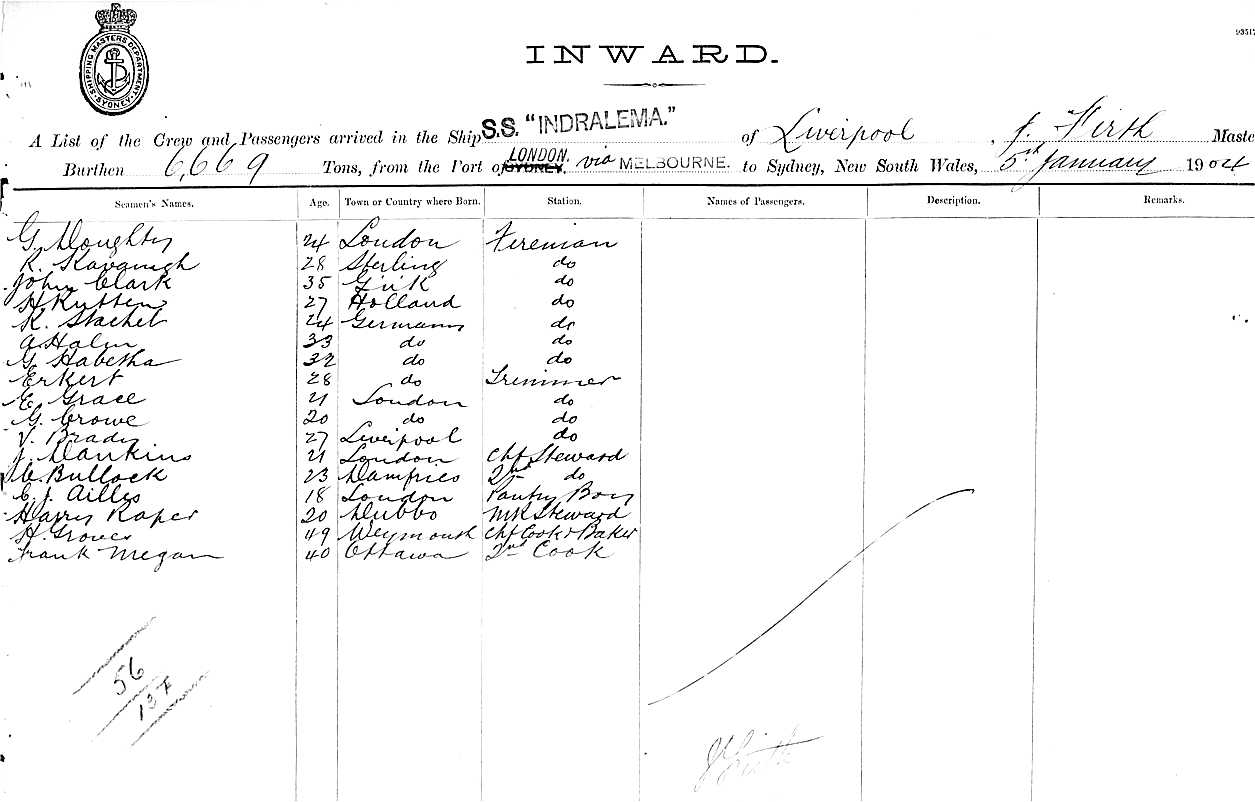 SHIPPING MASTERS DEPARTMENT SYDNEY
93517
INWARD.
A List of the Crew and Passengers arrived in the Ship S.S. "INDRALEMA." of Liverpool, J. Firth Maste
Burthen 6,669 Tons, from the Port of SYDNEY, LONDON. via MELBOURNE. to Sydney, New South Wales, 5th January 1904
Seamen's Names. Age. Town or Country where Born. Station. Names of Passengers. Description. Remarks.
G. Doughty 24 London Fireman
R. Kavanagh 28 Sterling do
John Clark 35 do
H Rutten 27 Holland do
K. Stachel 24 Germany do
A. Halm 33 do do
G. Habetha 32 do do
Erkert 28 do Trimmer
E. Grace 21 London do
G. Crowe 20 do do
J. Brady 27 Liverpool do
J. Dawkins 21 London Chf Steward
Bullock 23 Dumfries 2nd do
C. J. Ailles 18 London Pantry Boy
Harry Roper 20 Dubbo Steward
H. Groves 49 Weymouth Chf Cook & Baker
Frank Megan 40 Ottawa 2nd Cook
56